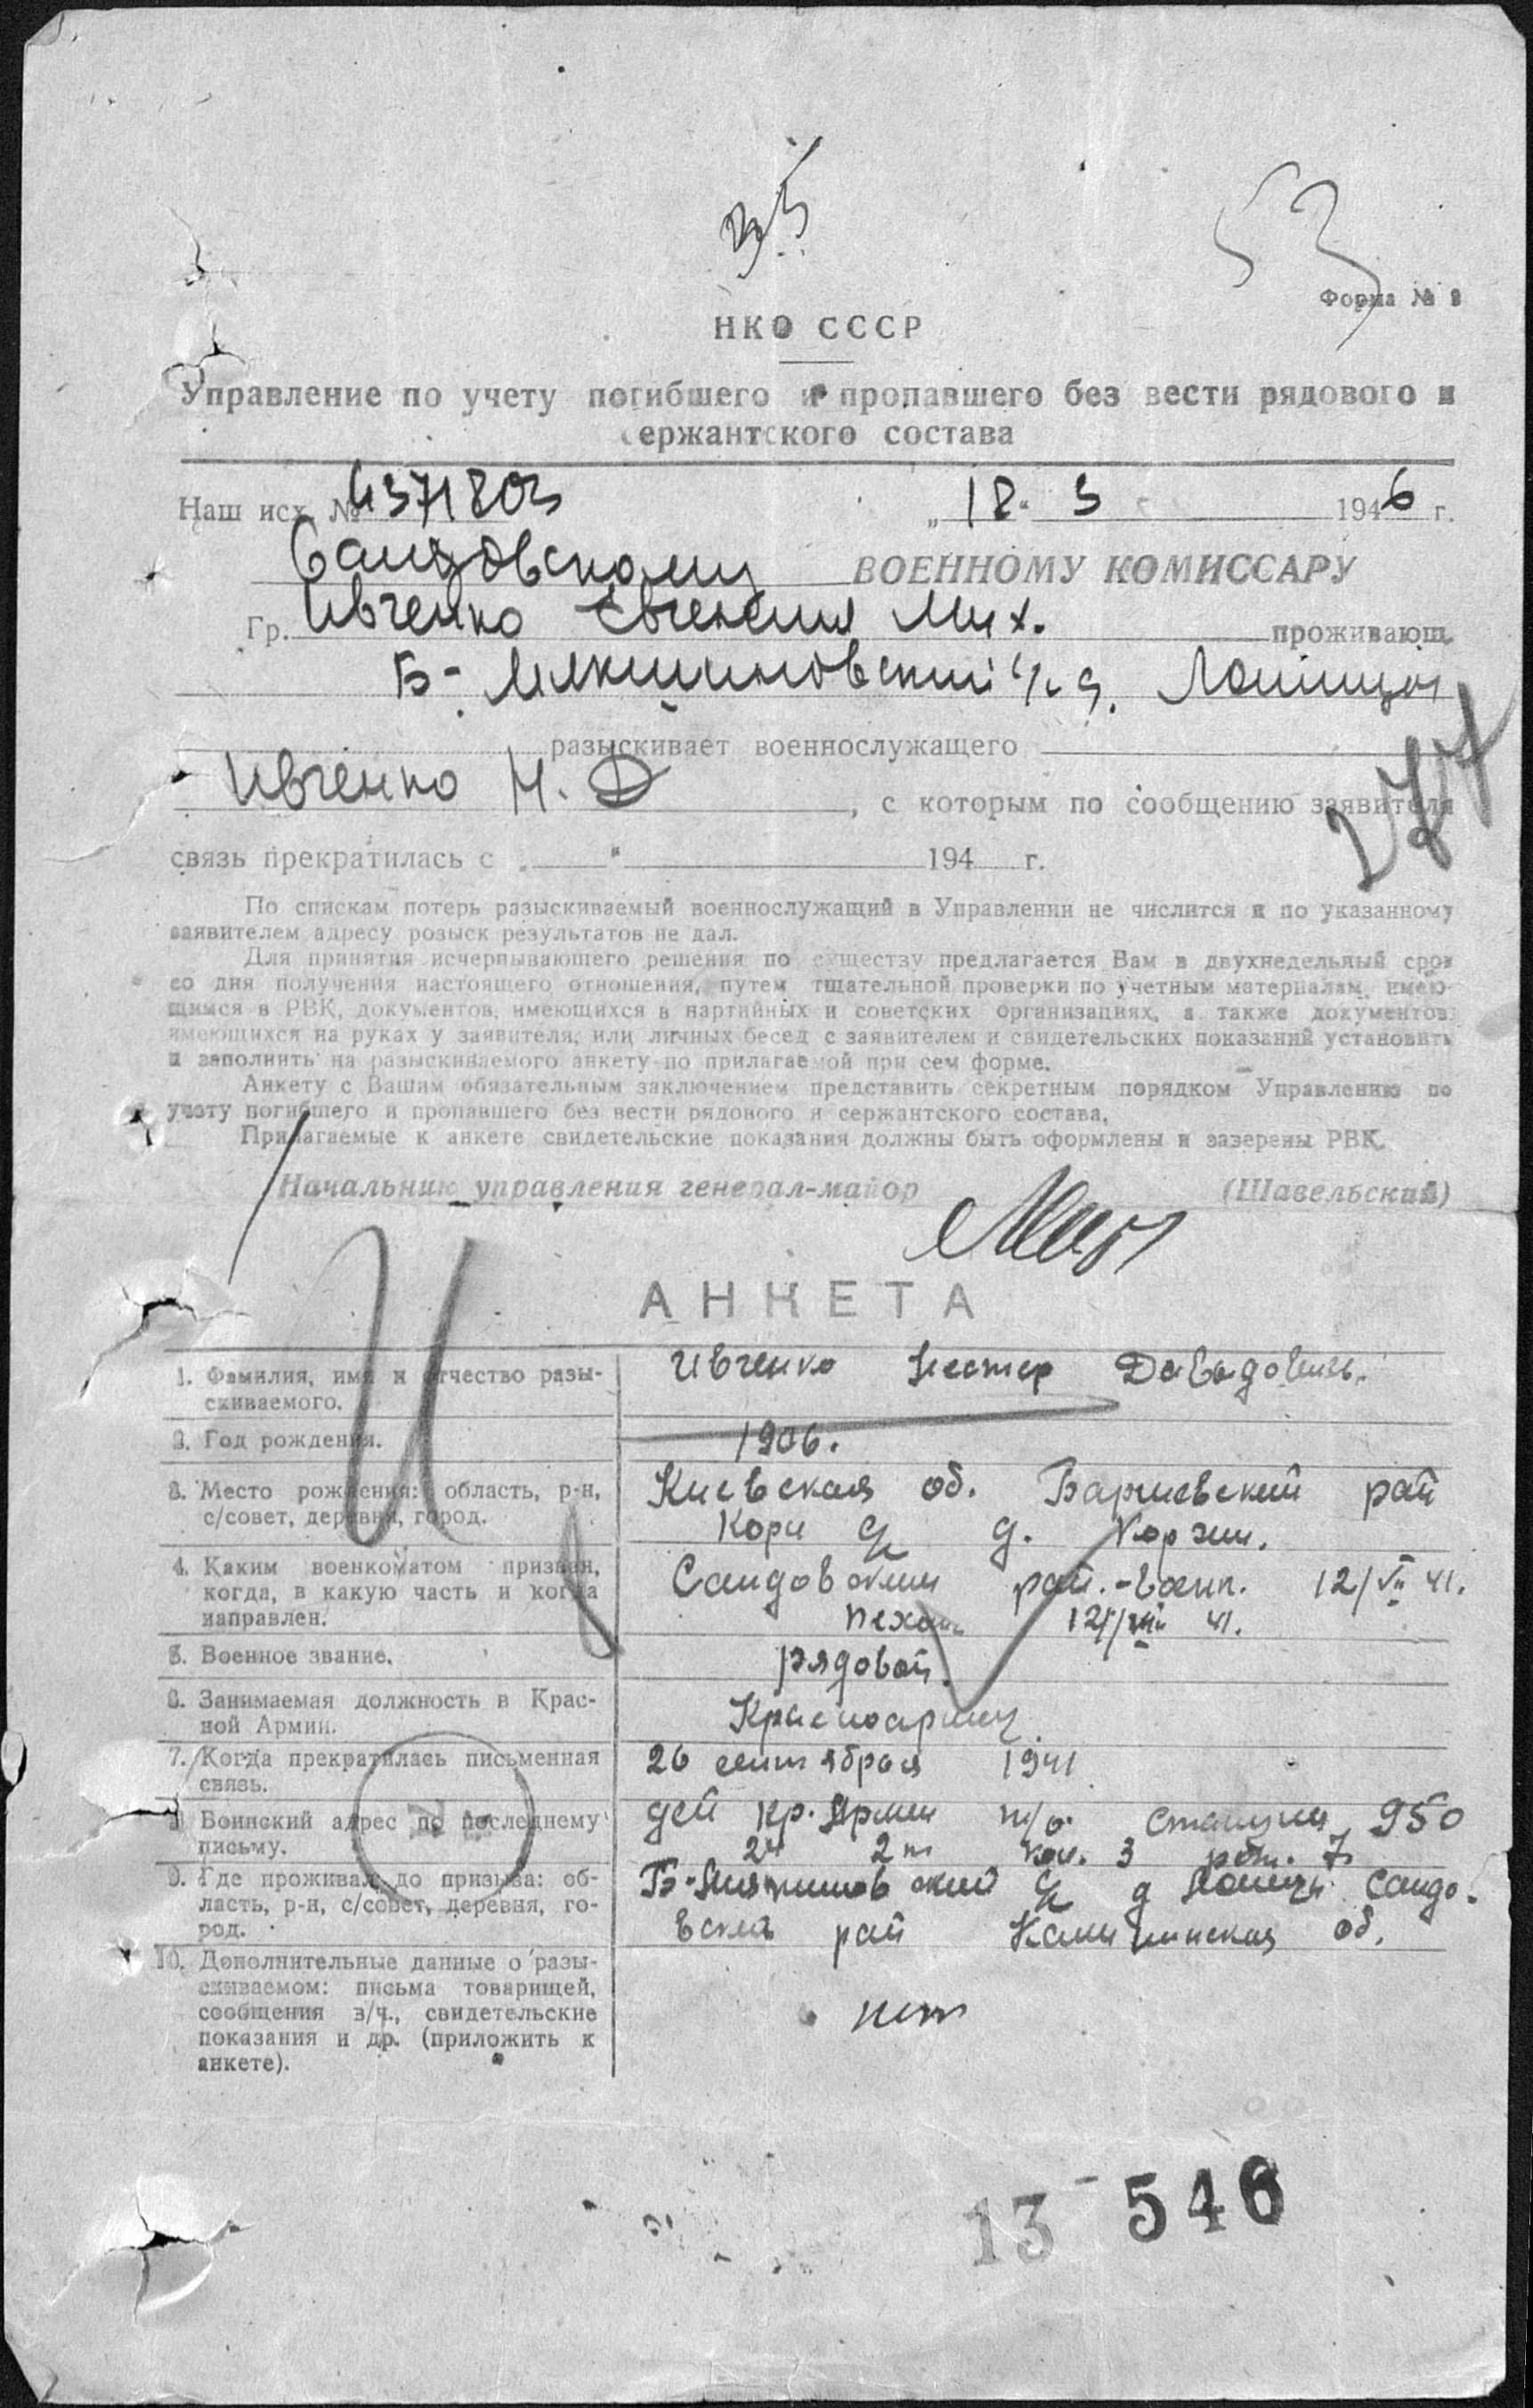 35
53
Форма № 2
НКО СССР
Управление по учету погибшего и пропавшего без вести рядового и
сержантского состава
Наш исх. № 4371803 „18" 3 1946 г.
Сандовскому ВОЕННОМУ КОМИССАРУ
Гр. Ивченко Евгения Мих. проживающ.
Б-Мякишиновский с/с д.
разыскивает военнослужащего
Ивченко Н. Д , с которым по сообщению заявителя
277
связь прекратилась с „ " 194 г.
По спискам потерь разыскиваемый военнослужащий в Управлении не числится и по указанному
заявителем адресу розыск результатов не дал.
Для принятия исчерпывающего решения по существу предлагается Вам в двухнедельный срок
со дня получения настоящего отношения, путем тщательной проверки по учетным материалам, имею-
щимся в РВК, документов, имеющихся в партийных и советских организациях, а также документов,
имеющихся на руках у заявителя, или личных бесед с заявителем и свидетельских показаний установить
и заполнить на разыскиваемого анкету по прилагаемой при сем форме.
Анкету с Вашим обязательным заключением представить секретным порядком Управлению по
учету погибшего и пропавшего без вести рядового и сержантского состава.
Прилагаемые к анкете свидетельские показания должны быть оформлены и заверены РВК.
Начальник управления генерал-майор (Шавельский)
АНКЕТА
И
1. Фамилия, имя и отчество разы-
скиваемого.
Ивченко Нестер Давыдович.
2. Год рождения.
1906.
3. Место рождения: область, р-н,
с/совет, деревня, город.
Киевская об. Барышевский рай
Корж с/с д. Коржи.
4. Каким военкоматом призван,
когда, в какую часть и когда
направлен.
Сандовским рай.-воен. 12/VII 41.
пехот. 12/VII 41.
5. Военное звание.
рядовой.
6. Занимаемая должность в Крас-
ной Армии.
Красноармец
7. Когда прекратилась письменная
связь.
26 сентября 1941
8. Воинский адрес по последнему
письму.
дей кр. Армии п/о. станция 950
24 3 7
9. Где проживал до призыва: об-
ласть, р-н, с/совет, деревня, го-
род.
Б-Мякишиновский с/с д Сандо-
вский рай Калининская об.
10. Дополнительные данные о разы-
скиваемом: письма товарищей,
сообщения в/ч., свидетельские
показания и др. (приложить к
анкете).
нет
13 546